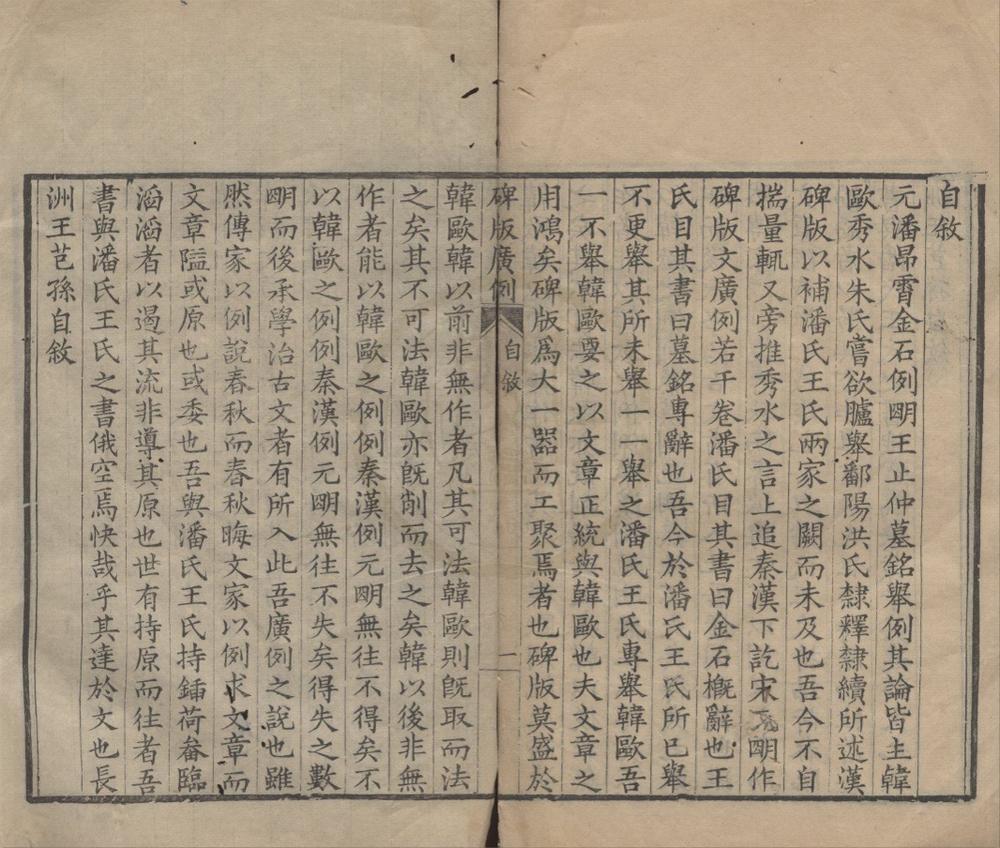 自敘
元潘昂霄金石例明王止仲墓銘舉例其論皆主韓
歐秀水朱氏嘗欲臚舉鄱陽洪氏隸釋隸續所述漢
碑版以補潘氏王氏兩家之闕而未及也吾今不自
揣量輒又旁推秀水之言上追秦漢下訖宋元明作
碑版文廣例若干卷潘氏目其書曰金石槪辭也王
氏目其書曰墓銘專辭也吾今於潘氏王氏所已舉
不更舉其所未舉一一舉之潘氏王氏專舉韓歐吾
一不舉韓歐要之以文章正統與韓歐也夫文章之
用鴻矣碑版爲大一器而工聚焉者也碑版莫盛於
碑版廣例
自敘
一
韓歐韓以前非無作者凡其可法韓歐則旣取而法
之矣其不可法韓歐亦旣削而去之矣韓以後非無
作者能以韓歐之例例秦漢例元明無往不得矣不
以韓歐之例例秦漢例元明無往不失矣得失之數
明而後承學治古文者有所入此吾廣例之說也雖
然傳家以例說春秋而春秋晦文家以例求文章而
文章隘或原也或委也吾與潘氏王氏持鍤荷畚臨
滔滔者以遏其流非導其原也世有持原而往者吾
書與潘氏王氏之書俄空焉快哉乎其達於文也長
洲王芑孫自敘